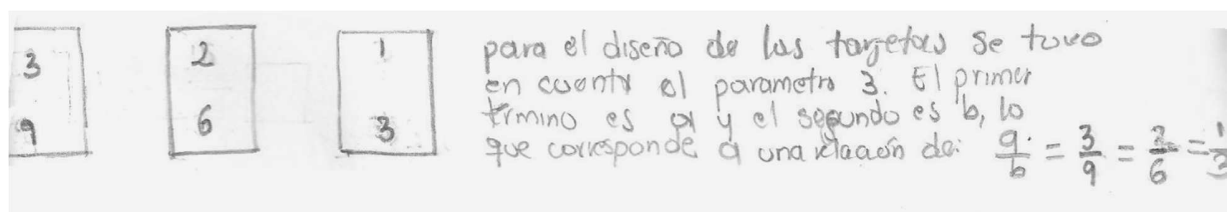 3
9
2
6
1
3
para el diseño de las targetas se tuvo
en cuenta el parametro 3. El primer
termino es a y el segundo es b, lo
que corresponde a una relación de: a/b = 3/9 = 2/6 = 1/3